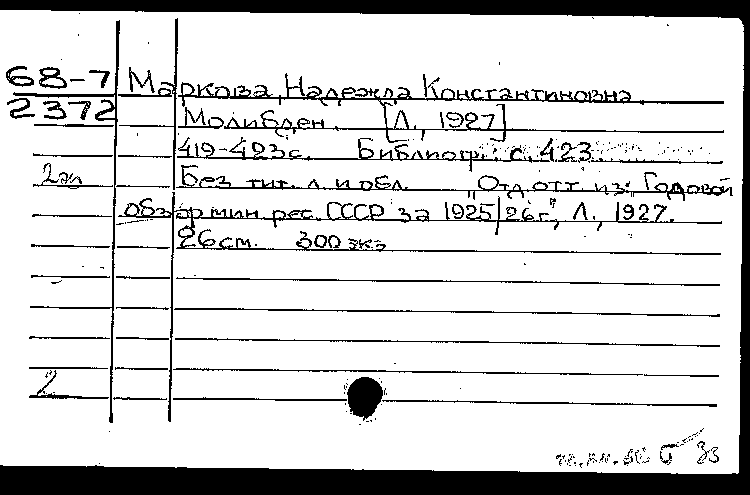 68-7 Маркова, Надежда Константиновна.
2372 Молибден. [Л., 1927]
419-423 с. Библиогр.: с. 423.
2 эк Без тит. л. и обл. "Отд. отт. из: Годовой
обзор мин. рес. СССР за 1925/26 г.", Л., 1927.
26 см. 300 экз
2